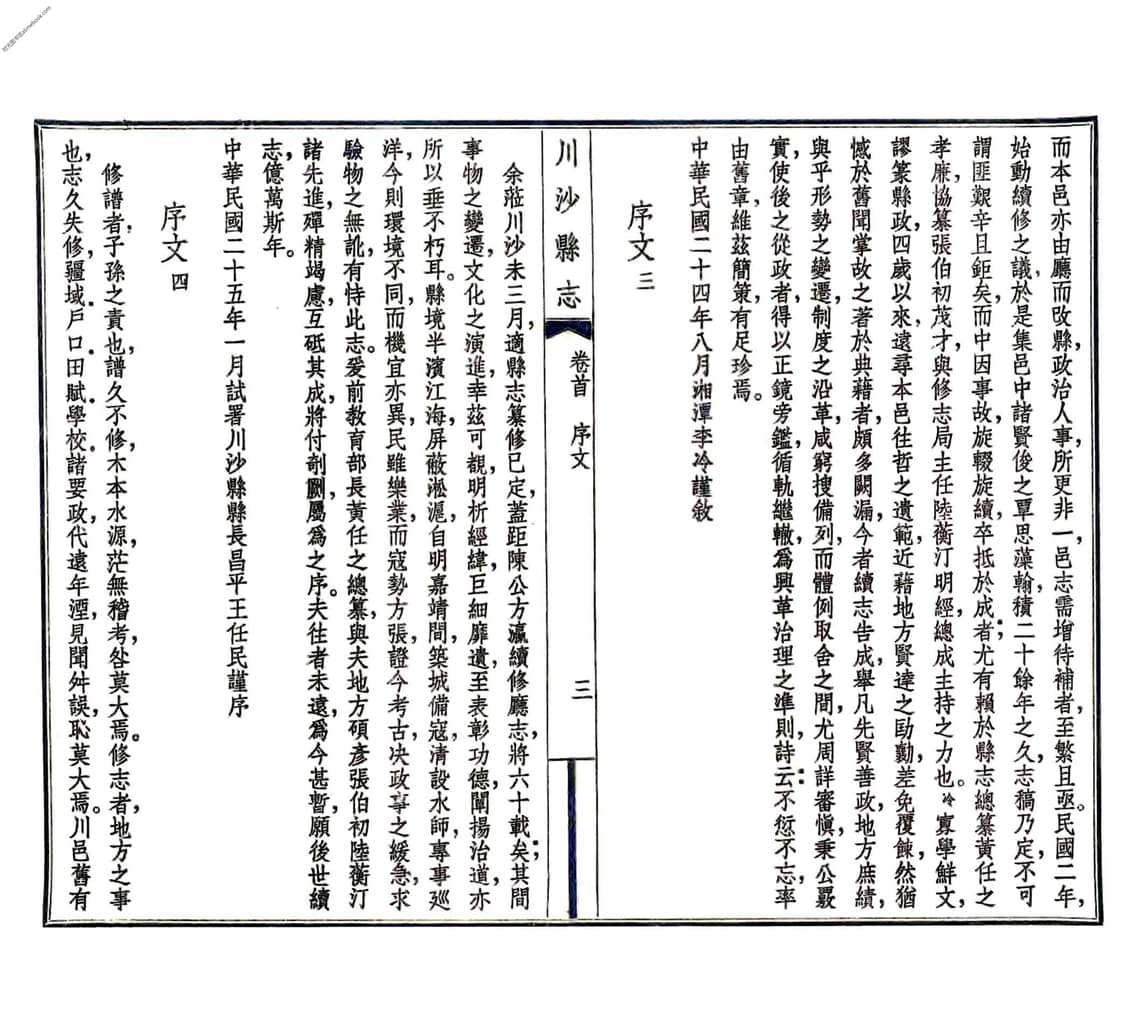 而本邑亦由廳而改縣，政治人事，所更非一，邑志需增待補者，至繁且亟。民國二年，
始動續修之議，於是集邑中諸賢俊之覃思藻翰，積二十餘年之久，志稿乃定，不可
謂匪艱辛且鉅矣，而中因事故，旋輟旋續，卒抵於成者；尤有賴於縣志總纂黃任之
孝廉，協纂張伯初茂才，與修志局主任陸蘅汀明經，總成主持之力也。冷寡學鮮文，
謬篆縣政，四歲以來，遠尋本邑往哲之遺範，近藉地方賢達之匡勷，差免覆餗，然猶
憾於舊聞掌故之著於典藉者，頗多闕漏，今者續志告成，舉凡先賢善政，地方庶績，
與乎形勢之變遷，制度之沿革，咸窮搜備列，而體例取舍之間，尤周詳審愼，秉公覈
實，使後之從政者，得以正鏡旁鑑，循軌繼轍，爲興革治理之準則，詩云：不愆不忘，率
由舊章，維茲簡策，有足珍焉。
中華民國二十四年八月湘潭李冷謹敘
序文 三
川沙縣志 卷首 序文 三
余蒞川沙未三月，適縣志纂修已定，蓋距陳公方瀛續修廳志，將六十載矣；其間
事物之變遷，文化之演進，幸茲可覩，明析經緯，巨細靡遺，至表彰功德，闡揚治道，亦
所以垂不朽耳。縣境半濱江海，屏蔽淞滬，自明嘉靖間，築城備寇，清設水師，專事巡
洋，今則環境不同，而機宜亦異，民雖樂業，而寇勢方張，證今考古，决政事之緩急，求
驗物之無訛，有恃此志。爰前教育部長黃任之總纂，與夫地方碩彥張伯初陸蘅汀
諸先進，殫精竭慮，互砥其成，將付剞劂，屬爲之序。夫往者未遠，爲今甚暫，願後世續
志，億萬斯年。
中華民國二十五年一月試署川沙縣縣長昌平王任民謹序
序文 四
修譜者，子孫之責也，譜久不修，木本水源，茫無稽考，咎莫大焉。修志者，地方之事
也，志久失修，疆域．戶口．田賦．學校．諸要政，代遠年湮，見聞舛誤，恥莫大焉。川邑舊有